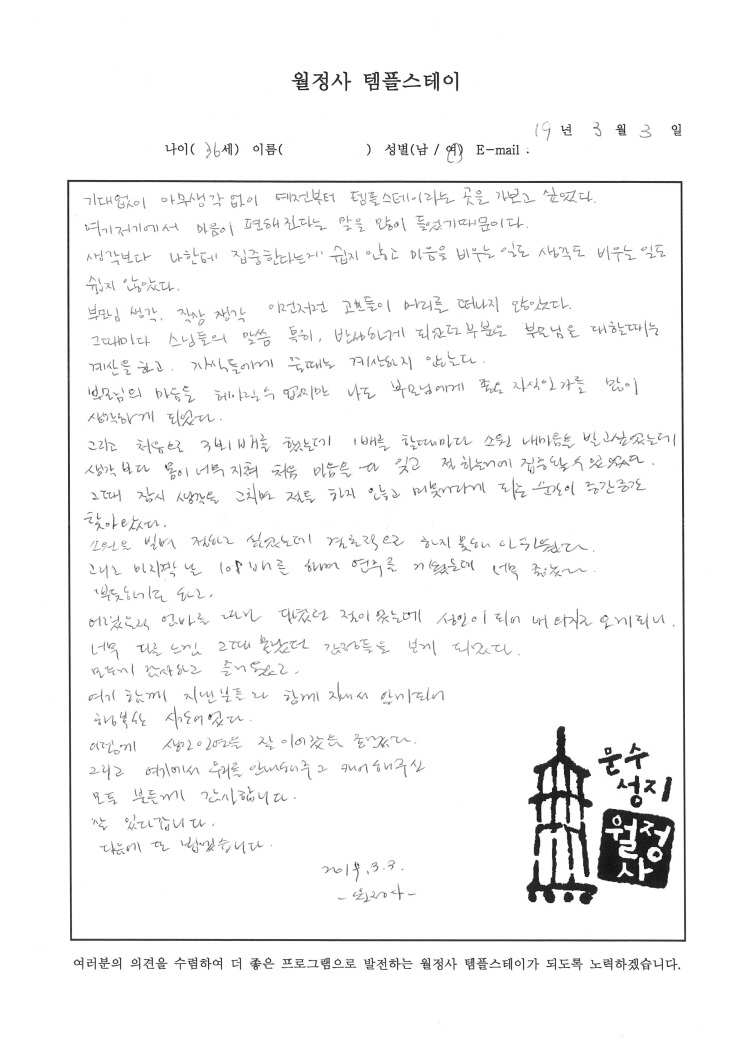 월정사 템플스테이
19 년 3 월 3 일
나이( 36세) 이름( ) 성별(남 / 여) E-mail :
기대없이 아무생각 없이 예전부터 템플스테이라는 곳을 가보고 싶었다.
여기저기에서 마음이 편해진다는 말을 많이 들었기때문이다.
생각보다 나한테 집중한다는게 쉽지 않고 마음을 비우는 일도 생각도 비우는 일도
쉽지 않았다.
부모님 생각, 직장 생각 이런저런 고민들이 머리를 떠나지 않았다.
그때마다 스님들의 말씀 특히, 반성하게 되었던 부분은 부모님은 대할때는
계산을 하고, 자식들에게 줄때는 계산하지 않는다.
부모님의 마음을 헤아릴수 없지만 나도 부모님에게 좋은 자식인가를 많이
생각하게 되었다.
그리고 처음으로 108배를 했는데 1배를 할때마다 소원 내마음을 빌고싶었는데
생각보다 몸이 너무 지쳐 처음 마음을 다 잊고 절 하는거에 집중할수 있었다.
그때 잠시 생각을 그치며 절을 하지 않고 머뭇거리게 되는 순간이 중간중간
찾아왔다.
소원을 빌며 절하고 싶었는데 결론적으로 하지 못해 아쉬웠다.
그리고 마지막 날 108배를 하며 염주를 꿰었는데 너무 좋았다.
뿌듯하기도 하고.
어렸을적 엄마를 따라 다녔던 절이 있는데 성인이 되어 내 발로 오게되니,
너무 다른 느낌 그때 몰랐던 감정들을 보게 되었다.
모든게 감사하고 즐거웠고,
여기 함께 지낸분들과 함께 지내서 알게되어
행복한 시간이었다.
이렇게 생긴 인연을 잘 이어갔음 좋겠다.
그리고 여기에서 우리를 안내해주고 케어해주신
모든 분들께 감사합니다.
잘 있다갑니다.
다음에 또 뵙겠습니다.
2019.3.3.
문수
성지
월정
사
여러분의 의견을 수렴하여 더 좋은 프로그램으로 발전하는 월정사 템플스테이가 되도록 노력하겠습니다.